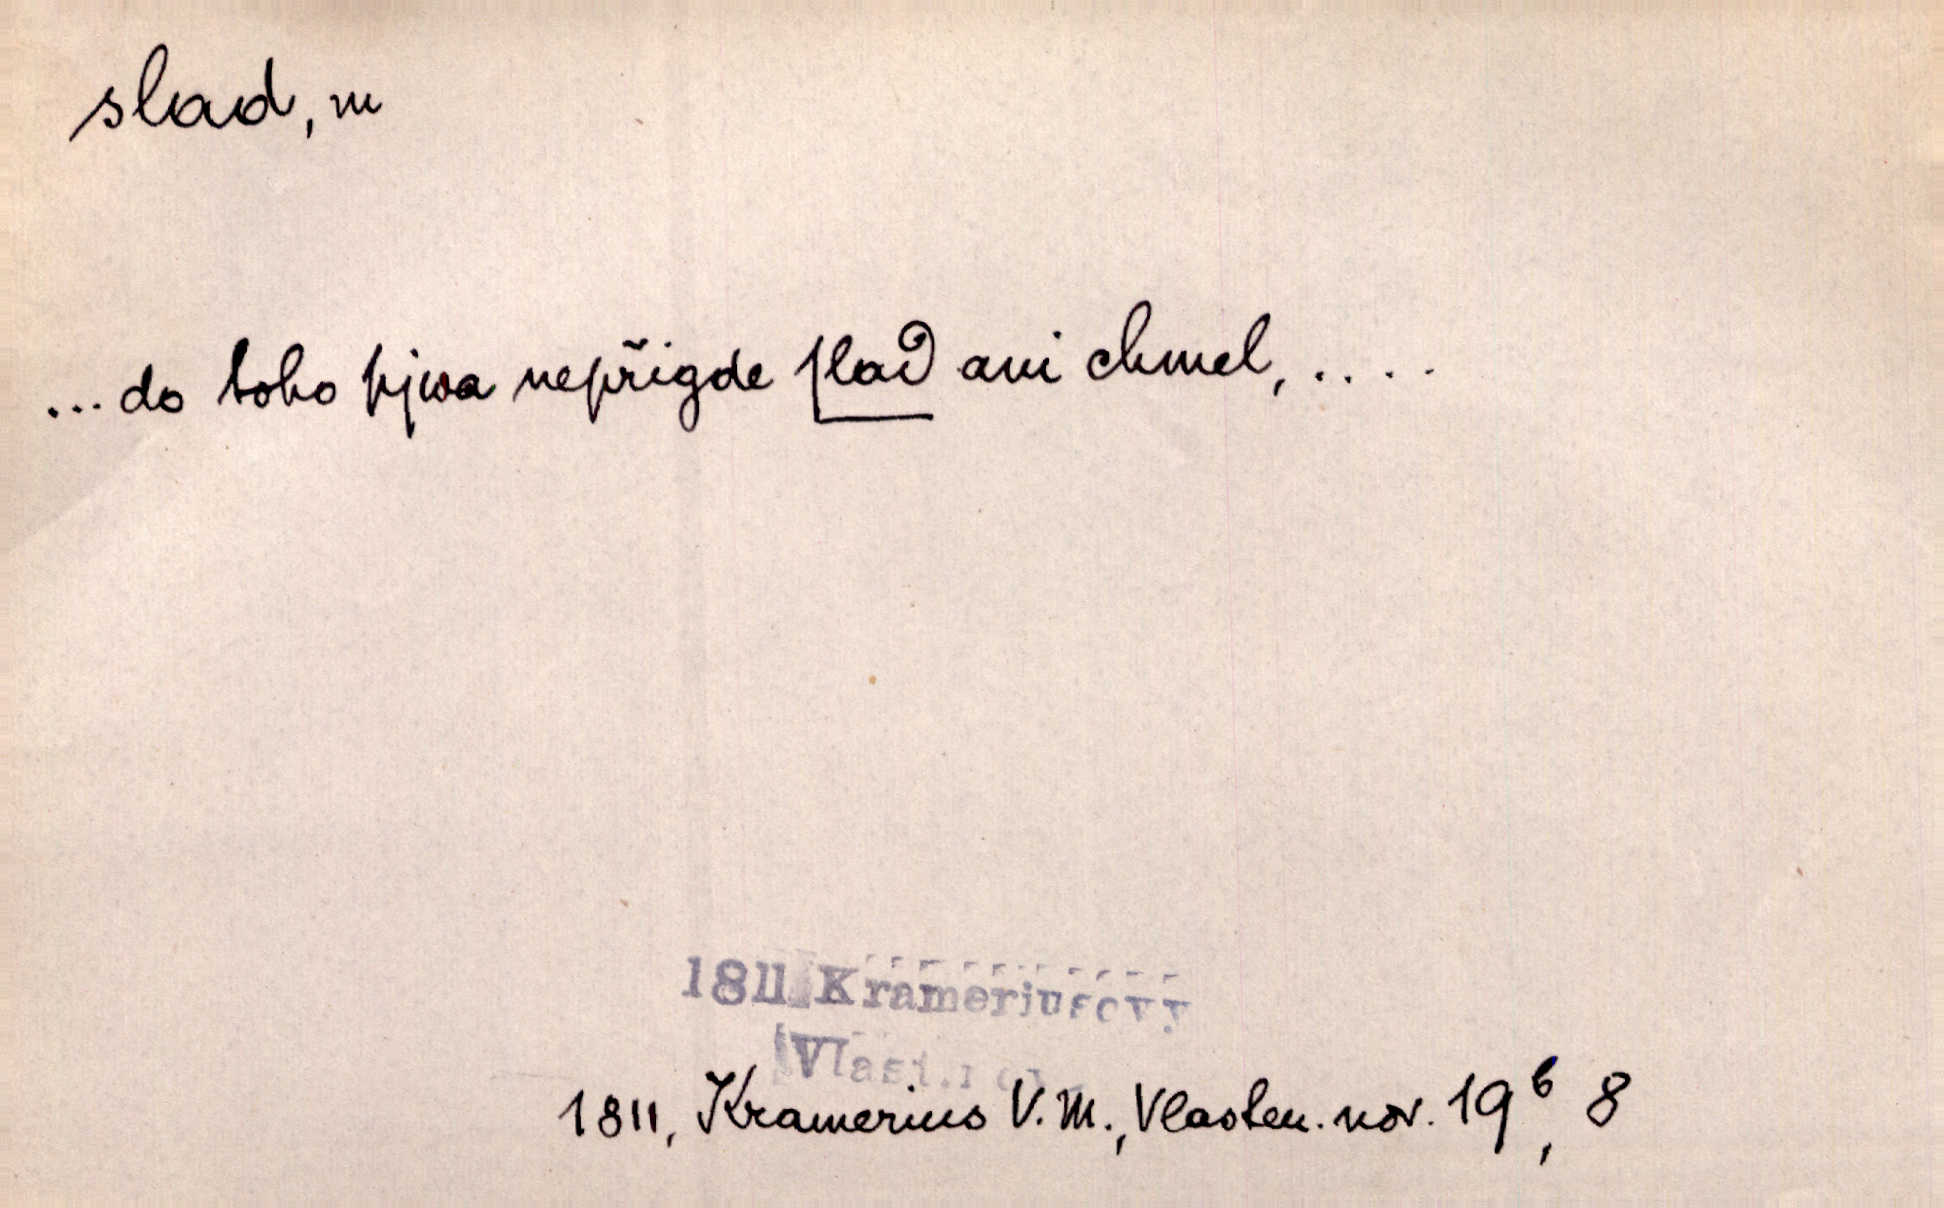 slad, m
...do toho pjwa nepřigde ſlad ani chmel, ....
1811 Krameriusovy
Vlast.nov.
1811, Kramerius V. M., Vlasten. nov. 19b, 8